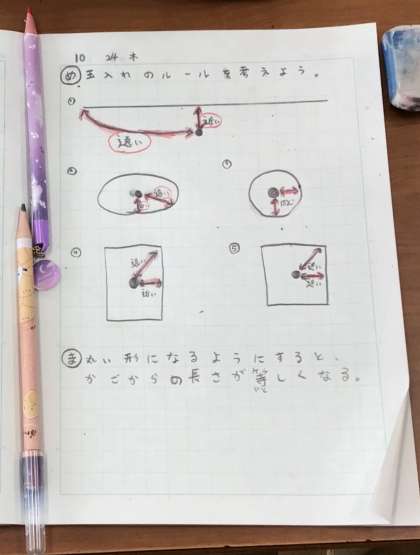 10 24 木
め 玉入れのルールを考えよう。
①
遠い
近い
②
遠い
③
④
遠い
近い
⑤
遠い
ま 丸い形になるようにすると、
かごからの長さが等しくなる。